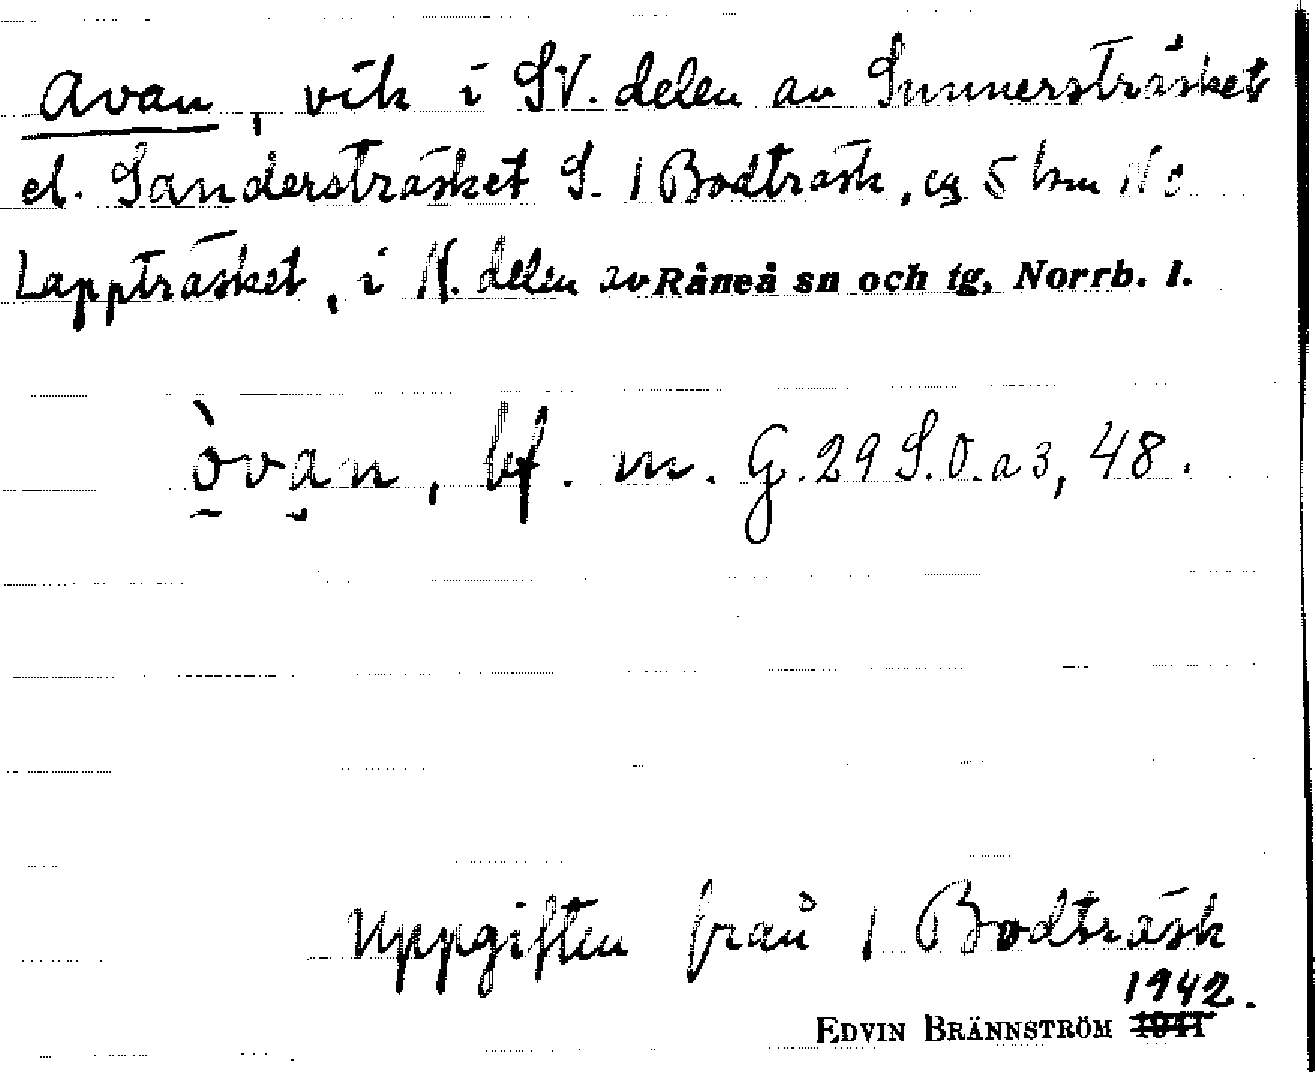 Avan, vik i SV. delen av Sunnersträsket
el. Sandersträsket S. 1 Bodträsk, ca 5 km NO
Lappträsket, i N. delen av Råneå sn och tg, Norrb. l.
òvan, bf. m. G. 29 S.O. a 3, 48.
Uppgiften från 1 Bodträsk
1942.
EDVIN BRÄNNSTRÖM 1941